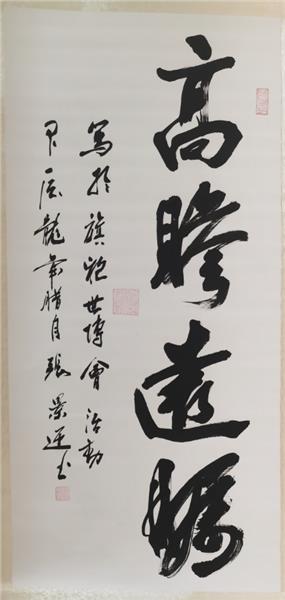 高瞻遠矚
寫於旗袍世博會活動
甲辰龍年腊月張景運书